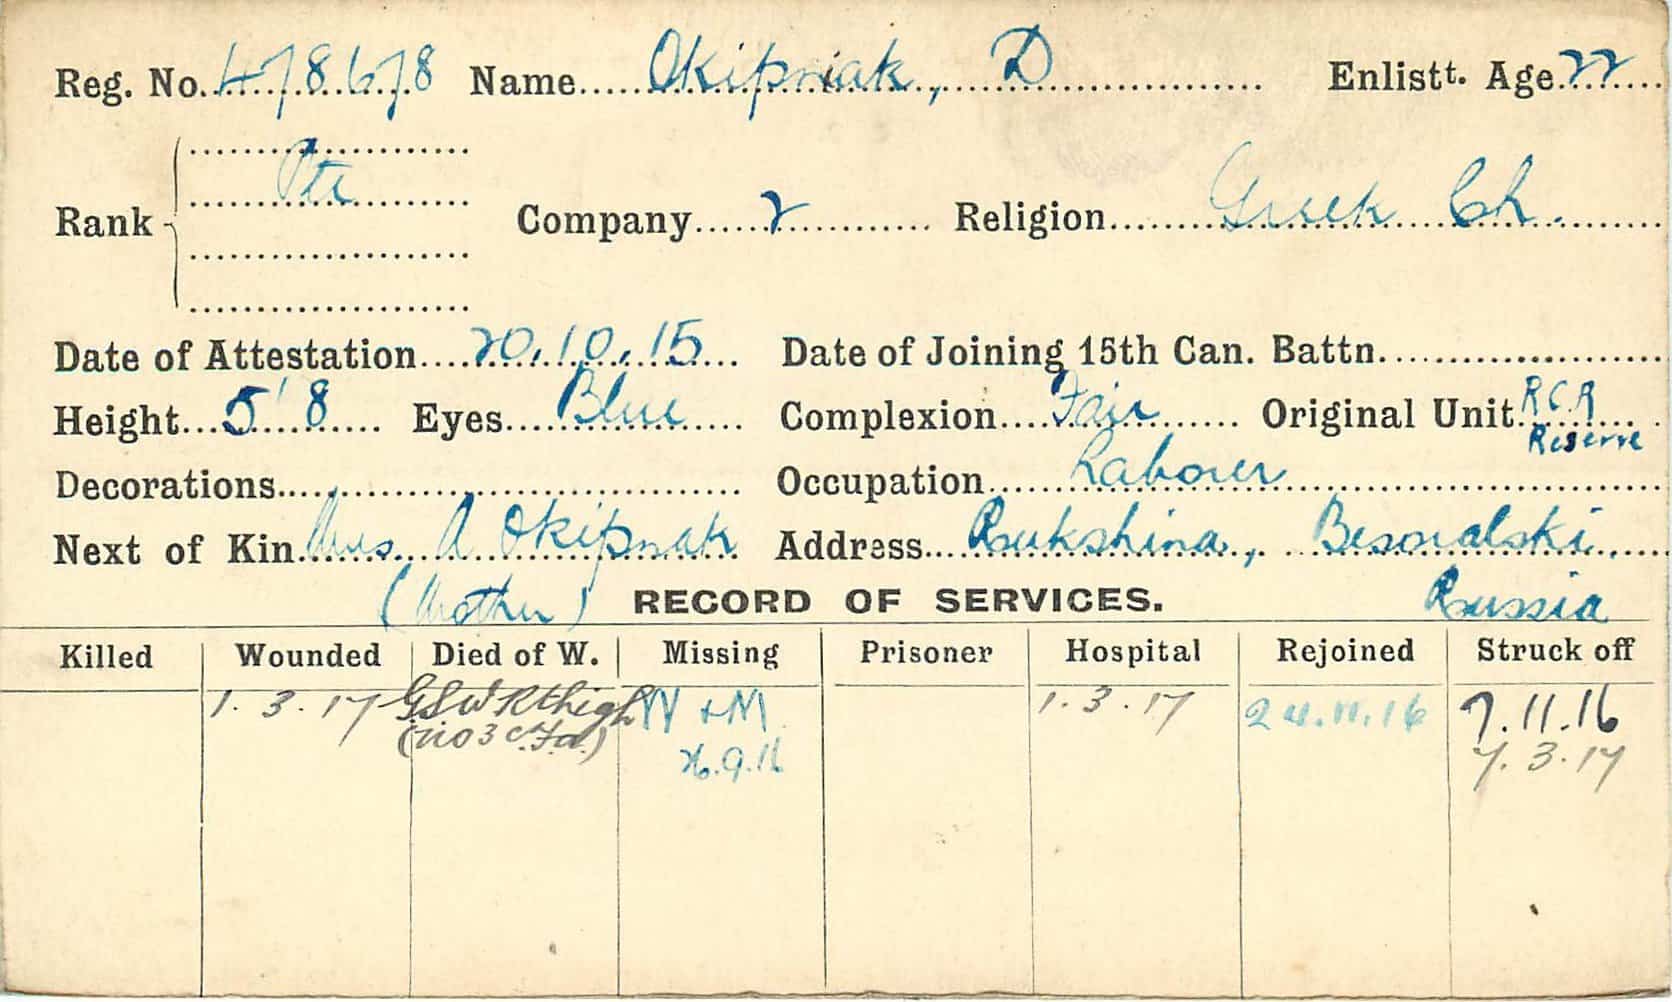 Reg. No. 478678 Name Okipniak, D Enlistt. Age 22
Rank Pte Company 2 Religion Greek Ch.
Date of Attestation 20.10.15 Date of Joining 15th Can. Battn.
Height 5' 8 Eyes Blue Complexion Fair Original Unit R C R Reserve
Decorations Occupation Laborer
Next of Kin Mrs. A Okipnak Address Rukshina,
(Mother) RECORD OF SERVICES. Russia
Killed Wounded Died of W. Missing Prisoner Hospital Rejoined Struck off
1.3.17 GSW R thigh W + M 1.3.17 24.11.16 7.11.16
(No 3 C.F.A.) 26.9.16 7.3.17